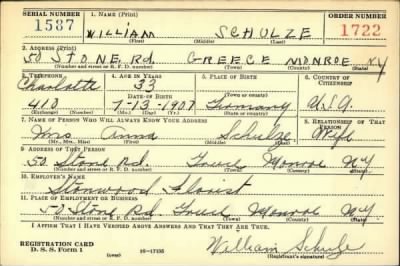 SERIAL NUMBER 1. NAME (Print) ORDER NUMBER
1587 WILLIAM SCHULZE 1722
(First) (Middle) (Last)
2. ADDRESS (Print)
50 STONE Rd. GREECE MONROE NY
(Number and street or R. F. D. number) (Town) (County) (State)
3. TELEPHONE 4. AGE IN YEARS 5. PLACE OF BIRTH 6. COUNTRY OF CITIZENSHIP
Charlotte 33
DATE OF BIRTH (Town or county)
410 7-13-1907 Germany U.S.A.
(Exchange) (Number) (Mo.) (Day) (Yr.) (State or country)
7. NAME OF PERSON WHO WILL ALWAYS KNOW YOUR ADDRESS 8. RELATIONSHIP OF THAT PERSON
Mrs Anna Schulze Wife
(Mr., Mrs., Miss) (First) (Middle) (Last)
9. ADDRESS OF THAT PERSON
50. Stone Rd. Greece Monroe NY
(Number and street or R. F. D. number) (Town) (County) (State)
10. EMPLOYER'S NAME
Stonwood Florist
11. PLACE OF EMPLOYMENT OR BUSINESS
50 Stone Rd. Greece Monroe NY
(Number and street or R. F. D. number) (Town) (County) (State)
I AFFIRM THAT I HAVE VERIFIED ABOVE ANSWERS AND THAT THEY ARE TRUE.
REGISTRATION CARD
D. S. S. Form 1 (over) 16-17105 William Schulze
(Registrant's signature)